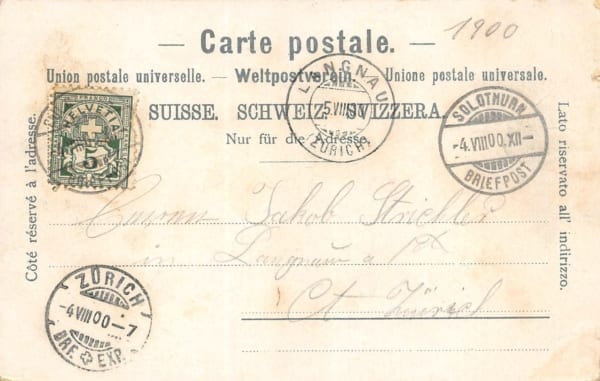 1900
— Carte postale. —
Union postale universelle. — Weltpostverein. — Unione postale universale.
SUISSE. SCHWEIZ. SVIZZERA.
Nur für die Adresse.
Côté réservé à l'adresse.
Lato riservato all' indirizzo.
FRANCO
HELVETIA
5
LANGNAU
5.VIII.00
(ZÜRICH)
SOLOTHURN
-4.VIII.00.XII-
BRIEFPOST
Jakob Strickler
in Langnau a
Ct Zürich
ZÜRICH
-4VIII00-7
BRF. EXP.